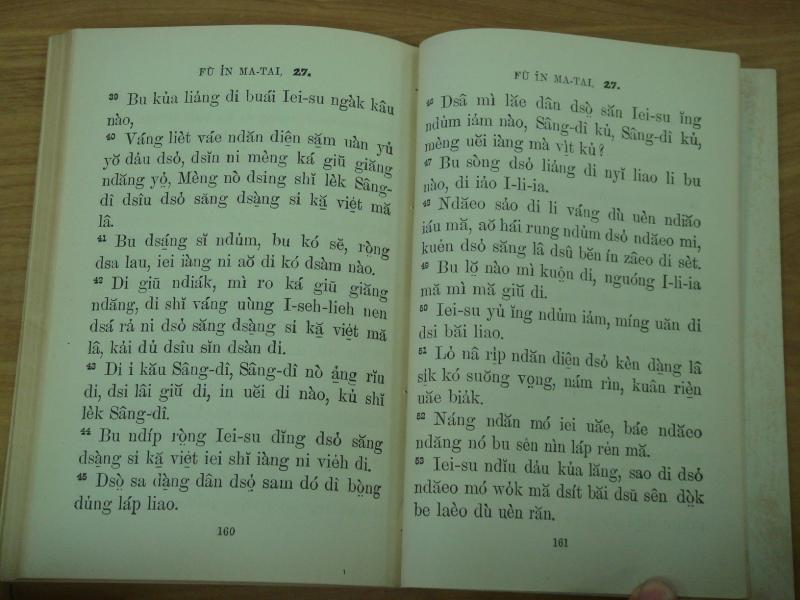 FŪ ÍN MA-TAI, 27.
39 Bu kủa liảng di buái Iei-su ngàk kâu
nào,
40 Váng lièt váe ndăn diện sặm uàn yủ
yỡ dảu dsỏ, dsĩn ni mèng ká giŭ giăng
ndăng yọ̉, Mèng nò dsing shĭ lèk Sâng-
dî dsîu dsỏ săng dsạ̀ng si kặ việt mă
lâ.
41 Bu dsạ́ng sĭ ndủm, bu kó sẽ, rọ̀ng
dsa lau, iei iàng ni aŏ di kó dsàm nào.
42 Di giŭ ndiák, mì ro ká giŭ giăng
ndăng, di shĭ váng uùng I-seh-lieh nen
dsá rả ni dsỏ săng dsạ̀ng si kặ việt mă
lâ, kải dủ dsîu sĭn dsàn di.
43 Di i kău Sâng-dî, Sâng-dî nò ạ̉ng rĩu
di, dsi lâi giŭ di, in uẽi di nào, kủ shĭ
lẻk Sâng-dî.
44 Bu ndíp rọ̀ng Iei-su dĭng dsỏ săng
dsạ̀ng si kặ việt iei shĭ iàng ni viẻh di.
45 Dsọ̀ sa dạ̀ng dân dsọ̉ sam dó dì bọ̀ng
dủng láp liao.
160
FŪ ÍN MA-TAI, 27.
46 Dsâ mì lăe dân dsọ̀ săn Iei-su ĭng
ndủm iảm nào, Sâng-dî kủ, Sâng-dî kủ,
mèng uẽi iàng mà vịt kủ?
47 Bu sòng dsỏ liảng di nyĭ liao li bu
nào, di iảo I-li-ia.
48 Ndăeo sảo di li váng dù uèn ndiăo
iáu mă, aŏ hái rung ndủm dsỏ ndăeo mi,
kuẻn dsỏ săng lâ dsû bẽn ín zâeo di sèt.
49 Bu lỡ nào mì kuộn di, nguóng I-li-ia
mă mì mă giŭ di.
50 Iei-su yủ ĭng ndủm iảm, míng uăn di
dsi băi liao.
51 Lỏ nâ rịp ndăn diện dsỏ kèn dạ̀ng lâ
sịk kó suỡng vọng, nám rìn, kuân riện
uăe biảk.
52 Náng ndăn mó iei uăe, báe ndăeo
ndăng nó bu sên nìn láp rẻn mă.
53 Iei-su ndĭu dảu kủa lăng, sao di dsỏ
ndăeo mó wỏk mă dsít băi dsũ sên dọ̀k
be laèo dù uèn răn.
161